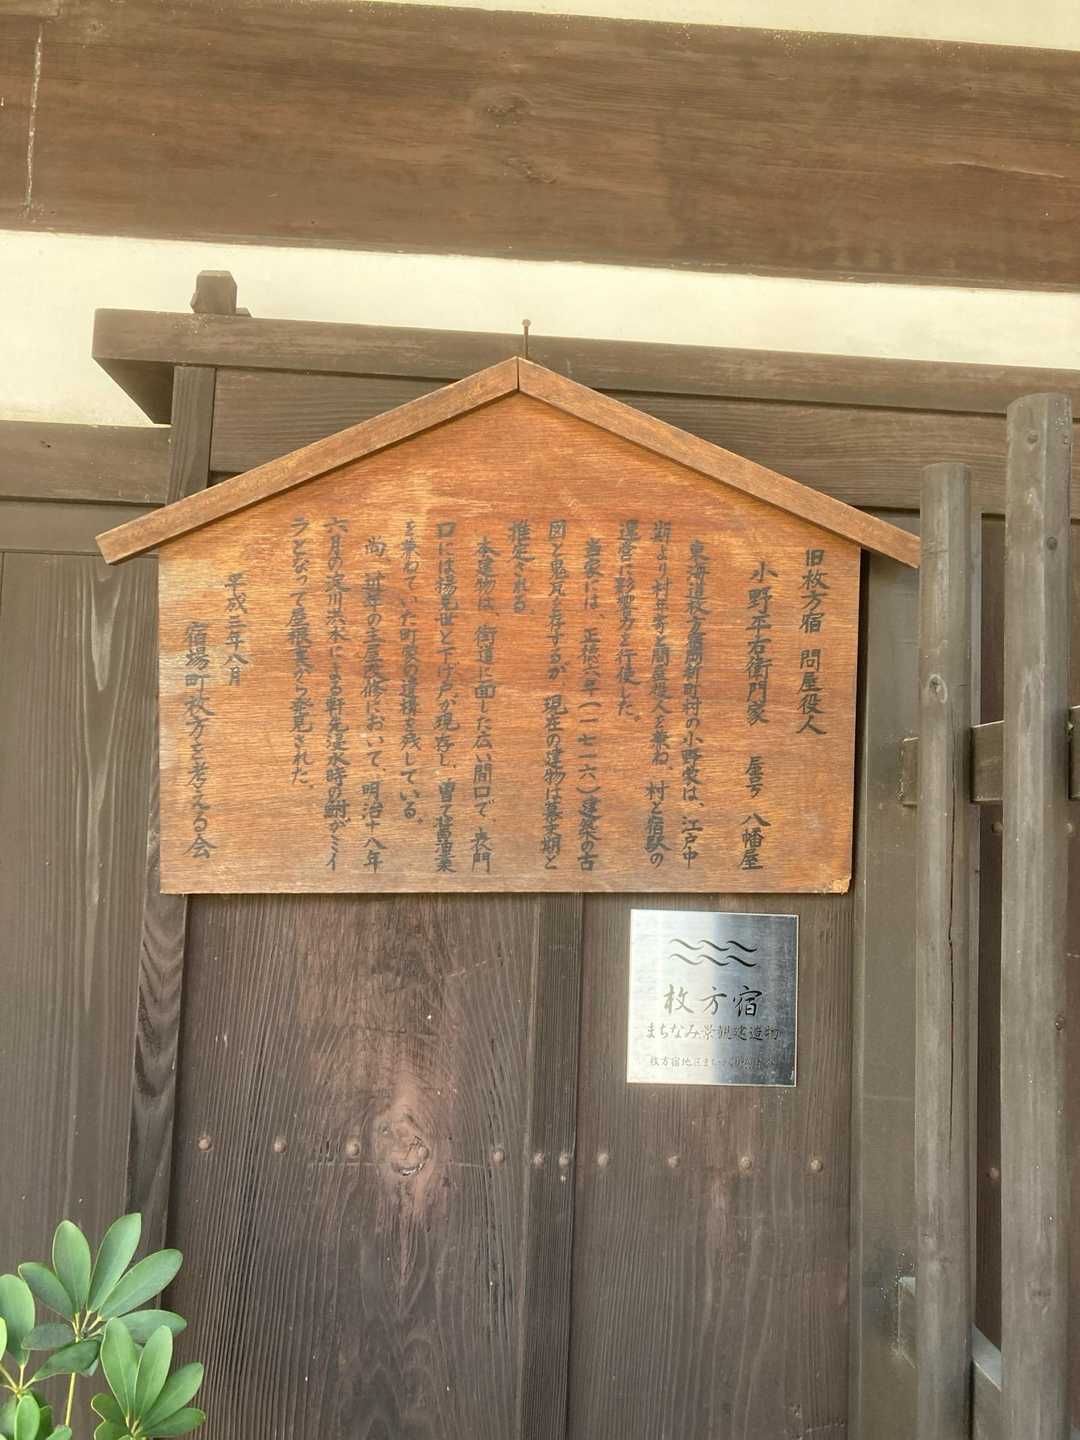 旧枚方宿 問屋役人
小野平右衛門家 屋号 八幡屋
東海道枚方宿岡新町村の小野家は、江戸中
期より村年寄と問屋役人を兼ね、村と宿駅の
運営に影響力を行使した。
当家には、正徳六年(一七一六)建築の古
図と鬼瓦を存するが 現在の建物は幕末期と
推定される。
本建物は、街道に面した広い間口で、表門
口には揚見世と下げ戸が現存し、曽て醤油業
を兼ねていた町家の遺構を残している。
尚、の主屋改修において、明治十八年
六月の淀川洪水による軒先浸水時の鮒がミイ
ラとなって屋根裏から発見された。
平成三年八月
宿場町枚方を考える会
枚方宿
まちなみ景観建造物
枚方宿地区まちづくり協議会